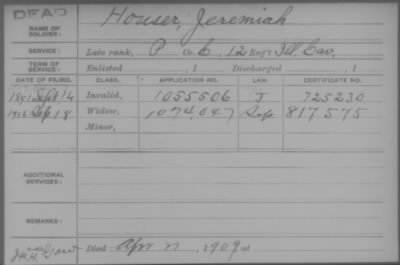 DEAD
NAME OF SOLDIER: Houser, Jeremiah
SERVICE: Late rank, P Co. C, 12 Reg't Ill Cav.
TERM OF SERVICE: Enlisted , 1 Discharged , 1
DATE OF FILING. CLASS. APPLICATION NO. LAW. CERTIFICATE NO.
1891 Sept 14 Invalid, 1055506 J 725230
Sep 18 Widow, 1074,047 817575
Minor,
ADDITIONAL SERVICES:
REMARKS:
Died Apr , 1909, at